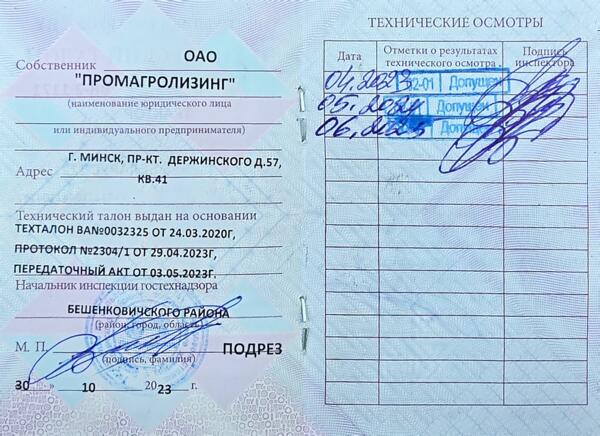 Собственник ОАО
"ПРОМАГРОЛИЗИНГ"
(наименование юридического лица
или индивидуального предпринимателя)
Адрес Г. МИНСК, ПР-КТ. ДЕРЖИНСКОГО Д.57,
КВ.41
Технический талон выдан на основании
ТЕХТАЛОН ВА№0032325 ОТ 24.03.2020Г,
ПРОТОКОЛ №2304/1 ОТ 29.04.2023Г,
ПЕРЕДАТОЧНЫЙ АКТ ОТ 03.05.2023Г.
Начальник инспекции гостехнадзора
БЕШЕНКОВИЧСКОГО РАЙОНА
(район, город, область)
М. П. ПОДРЕЗ
(подпись, фамилия)
30 » 10 2023 г.
ТЕХНИЧЕСКИЕ ОСМОТРЫ
Дата Отметки о результатах технического осмотра Подпись инспектора
04.2023 2-01 Допущен
05.2024 Допущен
06.2025 Допущен